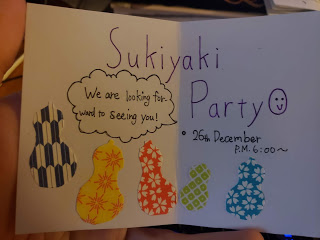 Sukiyaki
Party
We are looking for-
ward to seeing you!
26th December
P.M. 6:00~